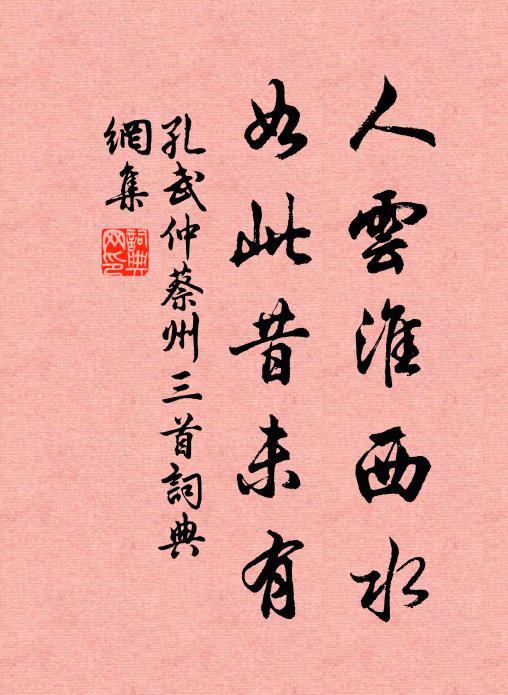 人雲淮西水
如此昔未有
孔武仲蔡州三首詞典
網集
詞典
網印